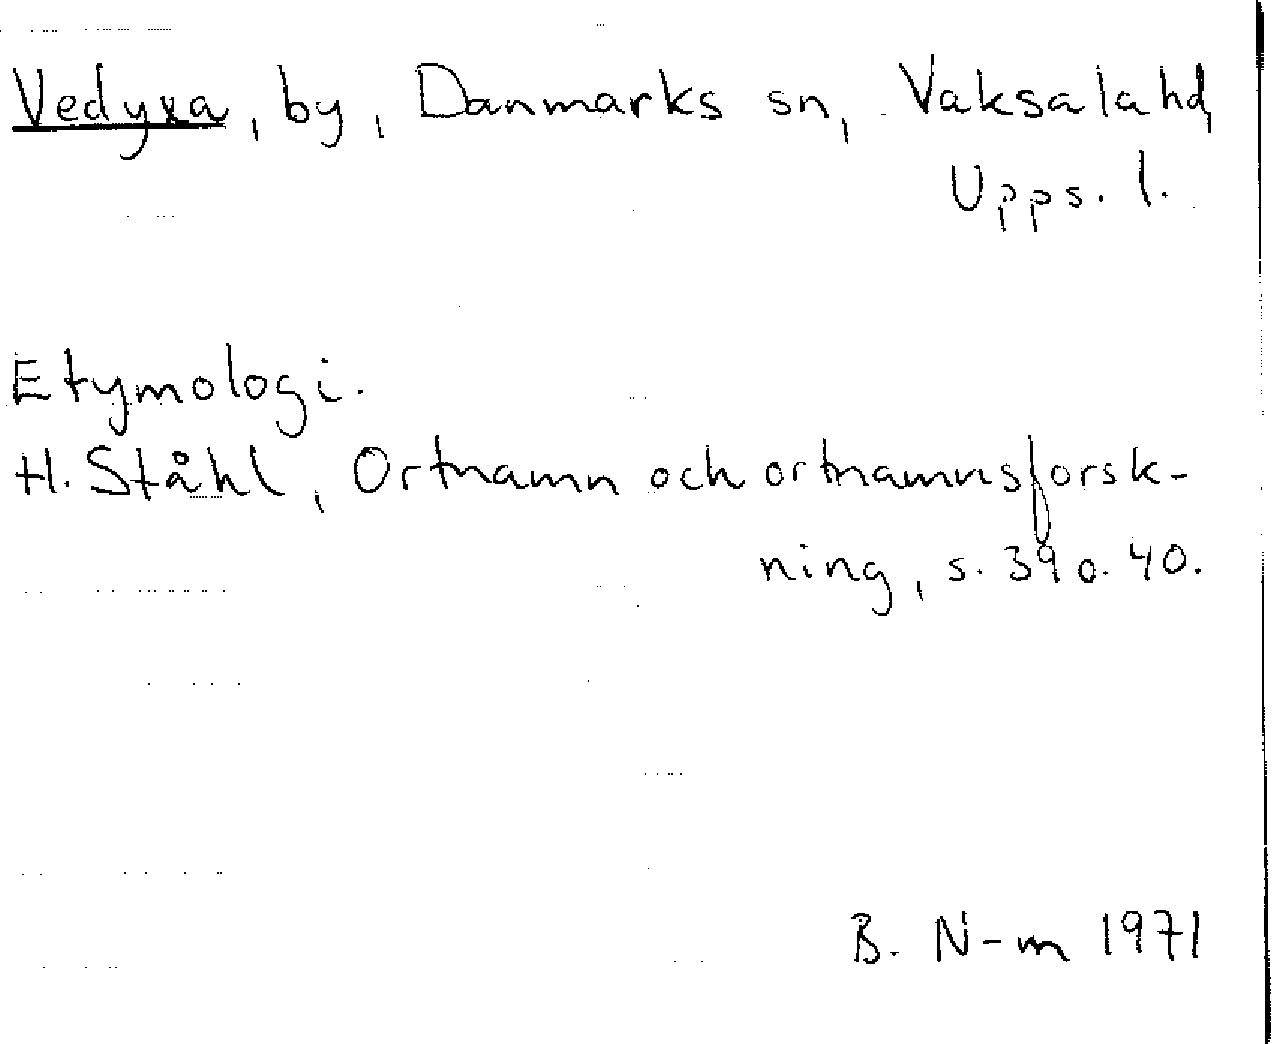 Vedyxa, by, Danmarks sn, Vaksala hd,
Upps. l.
Etymologi.
H. Ståhl, Ortnamn och ortnamnsforsk-
ning, s. 39 o. 40.
B. N-m 1971